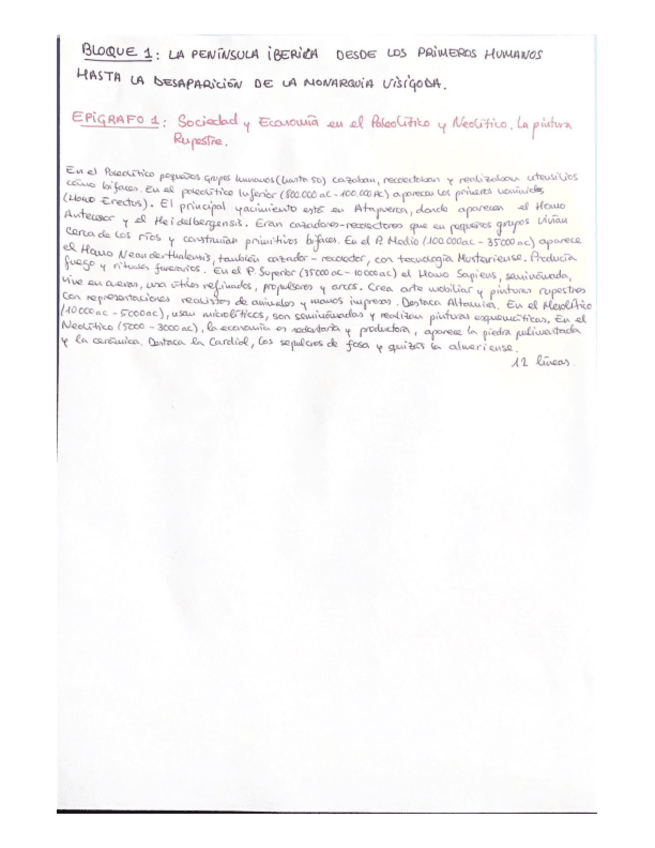 BLOQUE 1: LA PENÍNSULA IBERICA DESDE LOS PRIMEROS HUMANOS
HASTA LA DESAPARICIÓN DE LA MONARQUIA VISIGODA.
EPÍGRAFO 1: Sociedad y Economía en el Paleolítico y Neolítico. La pintura
Rupestre.
En el Paleolítico pequeños grupos humanos (hasta 50) cazaban, recolectaban y realizaban utensilios
como bifaces. En el paleolítico Inferior (800.000 aC - 100.000 AC) aparecen los primeros homínidos
(Homo Erectus). El principal yacimiento está en Atapuerca, donde aparecen el Homo
Antecessor y el Heidelbergensis. Eran cazadores-recolectores que en pequeños grupos vivían
cerca de los ríos y construían primitivos bifaces. En el P. Medio (100.000 aC - 35000 aC) aparece
el Homo Neanderthalensis, también cazador - recolector, con tecnología Musteriense. Producía
fuego y rituales funerarios. En el P. Superior (35000 aC - 10000 aC) el Homo Sapiens, seminómada,
vive en cuevas, usa útiles refinados, propulsores y arcos. Crea arte mobiliar y pinturas rupestres
con representaciones realistas de animales y manos impresas. Destaca Altamira. En el Mesolítico
(10000 aC - 5000 aC), usan microlíticos, son seminómadas y realizan pinturas esquemáticas. En el
Neolítico (5000 - 3000 aC), la economía es sedentaria y productora, aparece la piedra pulimentada
y la cerámica. Destaca la Cardial, los sepulcros de fosa y quizás la almeriense.
12 líneas.